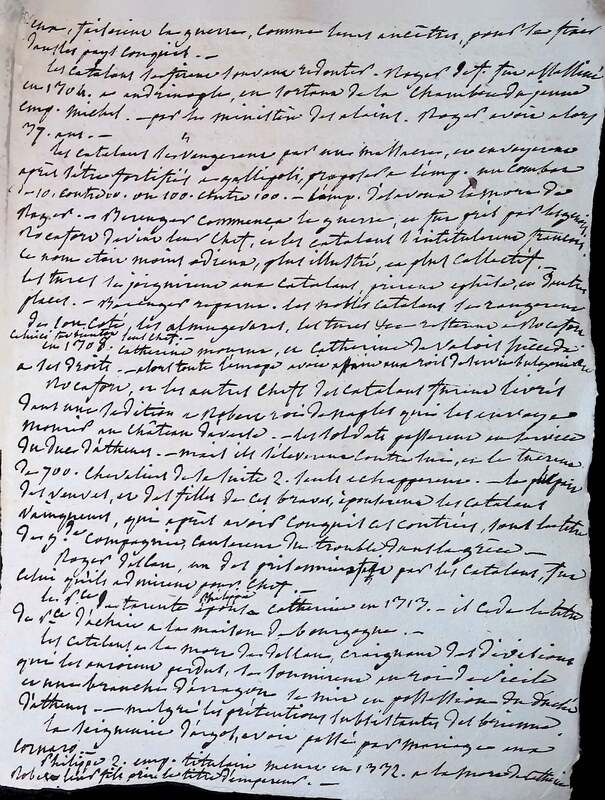 faisoient la guerre, comme leurs ancêtres, pour la fixer
dans les pays conquis. —
les catalans se firent souvent redouter. Roger de f. fut assassiné
en 1304. a andrinople, en sortant de la chambre du jeune
emp. michel. — par les ministère des alains. Roger avoit alors
37. ans. —
les catalans se vengerent par un massacre, et envoyerent
après s'être fortifiés a gallipoli, proposer a l'emp. un combat
10. contre 10. ou 100. contre 100. — l'emp. désavoua la mort de
Roger. — Berenger commença la guerre, et fut pris par les genois
Rocafort devint leur chef, et les catalans s'intitulerent francois.
ce nom étoit moins odieux, plus illustre, et plus collectif.
les turcs se joignirent aux catalans, prirent ephèse, et d'autres
places. — Berenger reparut. les nobles catalans se rangerent
de son coté, les almugavares, les turcs resterent a Rocafort
celui-ci fut bientôt seul chef. —
en 1308. catherine mourut, et Catherine de Valois succeda
a ses droits. — alors toute l'europe avoit
Rocafort, et les autres chefs des catalans furent livrés
dans une sedition a Robert roi de naples qui les envoya
mourir au château d'averse. — les soldats passerent au service
du Duc d'athenes. — mais ils s'éleverent contre lui, et le tuerent
de 700. chevaliers de sa suite 2. seuls echapperent. — la plupart
des veuves, et des filles de ces braves, épouserent les catalans
vainqueurs, qui après avoir conquis ces contrées, sous le titre
de gde Compagnie, causerent du trouble dans la grèce. —
Roger dellau, un des prisonniers faits par les catalans, fut
celui qu'ils admirent pour chef. —
le pce de tarente Philippe épousa Catherine en 1313. — il ceda le titre
de pce d'achaie a la maison de bourgogne. —
les catalans a la mort de dellau, craignant des divisions
qui les auroient perdus, se soumirent au roi de sicile
et une branche d'arragon se mit en possession du duché
d'athenes. — malgré les prétentions subsistantes des brienne.
la seigneurie d'argos, avoit passé par mariage aux
cornaro. —
Philippe 2. emp. titulaire meurt en 1332. a la mort de Catherine
Robert leur fils prit le titre d'empereur. —